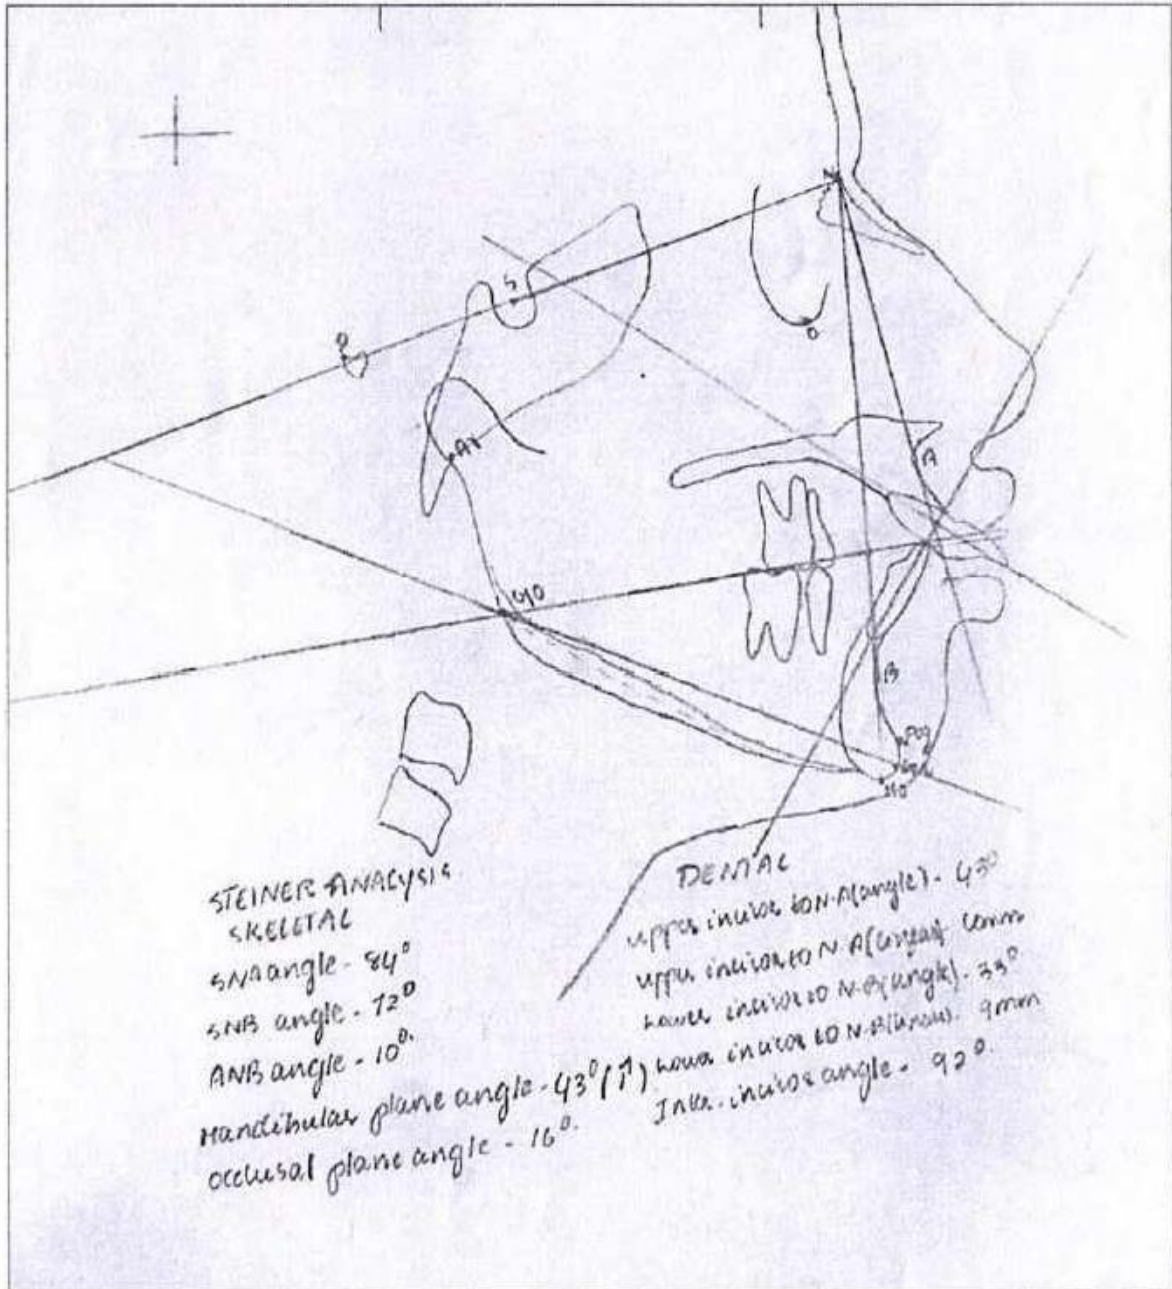 N
S
P
O
Ar
A
GO
B
Pog
Gn
Me
STEINER ANALYSIS
SKELETAL
SNA angle - 84°
SNB angle - 72°
ANB angle - 10°.
Mandibular plane angle - 43° (↑)
occlusal plane angle - 16°.
DENTAL
upper incisor to N-A(angle). 43°
upper incisor to N-A(linear)
Lower incisor to N-B(angle). 33°
Lower incisor to N-B(linear). 9mm
Inter-incisor angle - 92°.